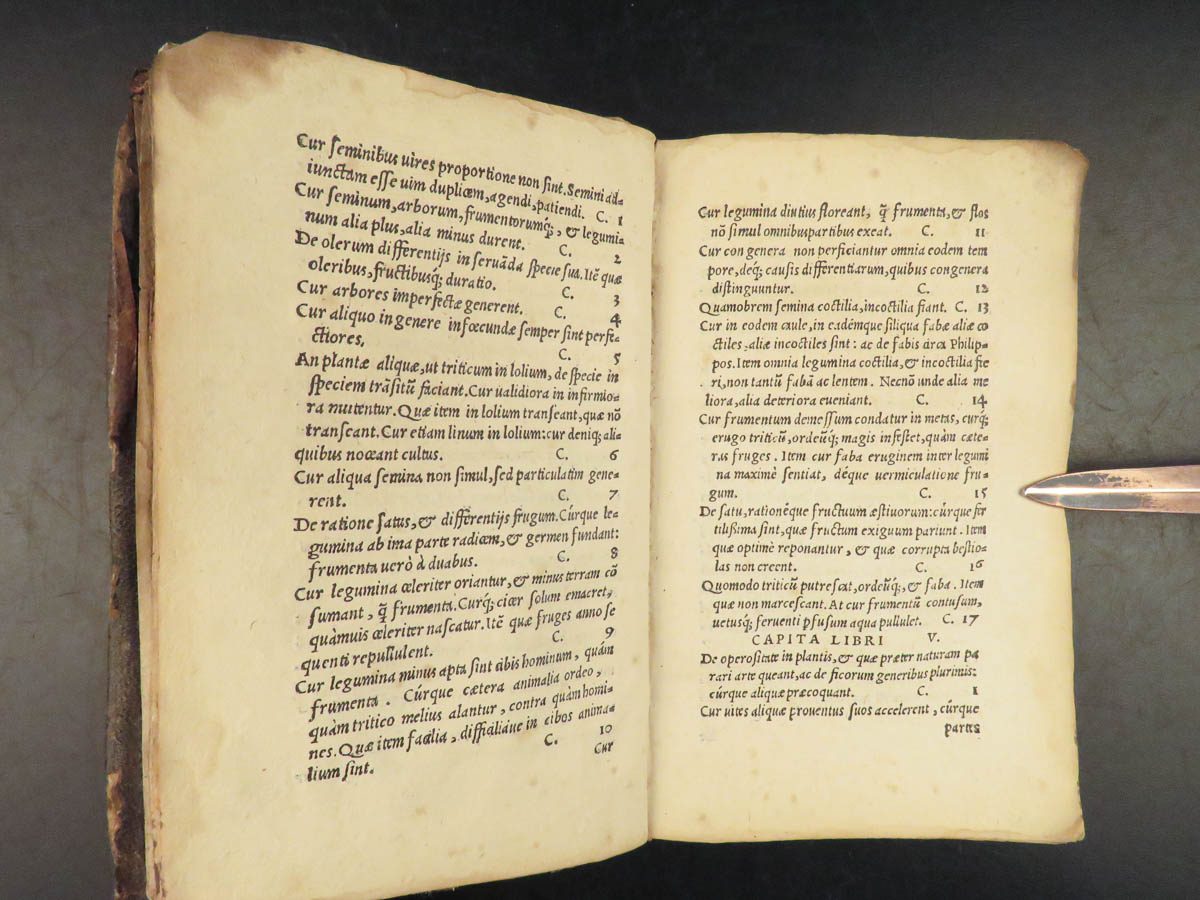 Cur seminibus uires proportione non sint. Semini ad-
iunctam esse uim duplicem, agendi, patiendi. C. 1
Cur seminum, arborum, frumentorumq́;, & legumi-
num alia plus, alia minus durent. C. 2
De olerum differentijs in seruãda specie sua. Itẽ quæ
oleribus, fructibusq́; duratio. C. 3
Cur arbores imperfectæ generent. C. 4
Cur aliquo in genere infœcundæ semper sint perfe-
ctiores. C. 5
An plantæ aliquæ, ut triticum in lolium, de specie in
speciem trãsitũ faciant. Cur ualidiora in infirmio-
ra mutentur. Quæ item in lolium transeant, quæ nõ
transeant. Cur etiam linum in lolium: cur deniq; ali-
quibus noceant cultus. C. 6
Cur aliqua semina non simul, sed particulatim gene-
rent. C. 7
De ratione satus, & differentijs frugum. Cúrque le-
gumina ab ima parte radicem, & germen fundant:
frumenta uerò à duabus. C. 8
Cur legumina celeriter oriantur, & minus terram cõ
sumant, q̃ frumenta. Curq́; cicer solum emacret,
quàmuis celeriter nascatur. Itẽ quæ fruges anno se
quenti repullulent. C. 9
Cur legumina minus apta sint cibis hominum, quàm
frumenta. Cúrque cætera animalia ordeo,
quàm tritico melius alantur, contra quàm homi-
nes. Quæ item facilia, difficiliaue in cibos anima-
lium sint. C. 10
Cur
Cur legumina diutius floreant, q̃ frumenta, & flos
nõ simul omnibus partibus exeat. C. 11
Cur congenera non perficiantur omnia eodem tem
pore, deq́; causis differentiarum, quibus congenera
distinguuntur. C. 12
Quamobrem semina coctilia, incoctilia fiant. C. 13
Cur in eodem caule, in eadémque siliqua fabæ aliæ co
ctiles, aliæ incoctiles sint: ac de fabis circa Philip-
pos. Item omnia legumina coctilia, & incoctilia fie
ri, non tantũ fabã ac lentem. Necnõ unde alia me
liora, alia deteriora eueniant. C. 14
Cur frumentum demessum condatur in metas, curq́;
erugo triticũ, ordeũq́; magis infestet, quàm cæte-
ras fruges. Item cur faba eruginem inter legumi
na maximè sentiat, déque uermiculatione fru-
gum. C. 15
De satu, rationéque fructuum æstiuorum: cúrque fer
tilissima sint, quæ fructum exiguum pariunt. Item
quæ optimè reponantur, & quæ corrupta bestio-
las non creent. C. 16
Quomodo triticũ putrescat, ordeũq́;, & faba. Item
quæ non marcescant. At cur frumentũ contusum,
uetusq́; feruenti pfusum aqua pullulet. C. 17
CAPITA LIBRI V.
De operositate in plantis, & quæ præter naturam pa
rari arte queant, ac de ficorum generibus plurimis:
cúrque aliquæ præcoquant. C. 1
Cur uites aliquæ prouentus suos accelerent, cúrque
partes